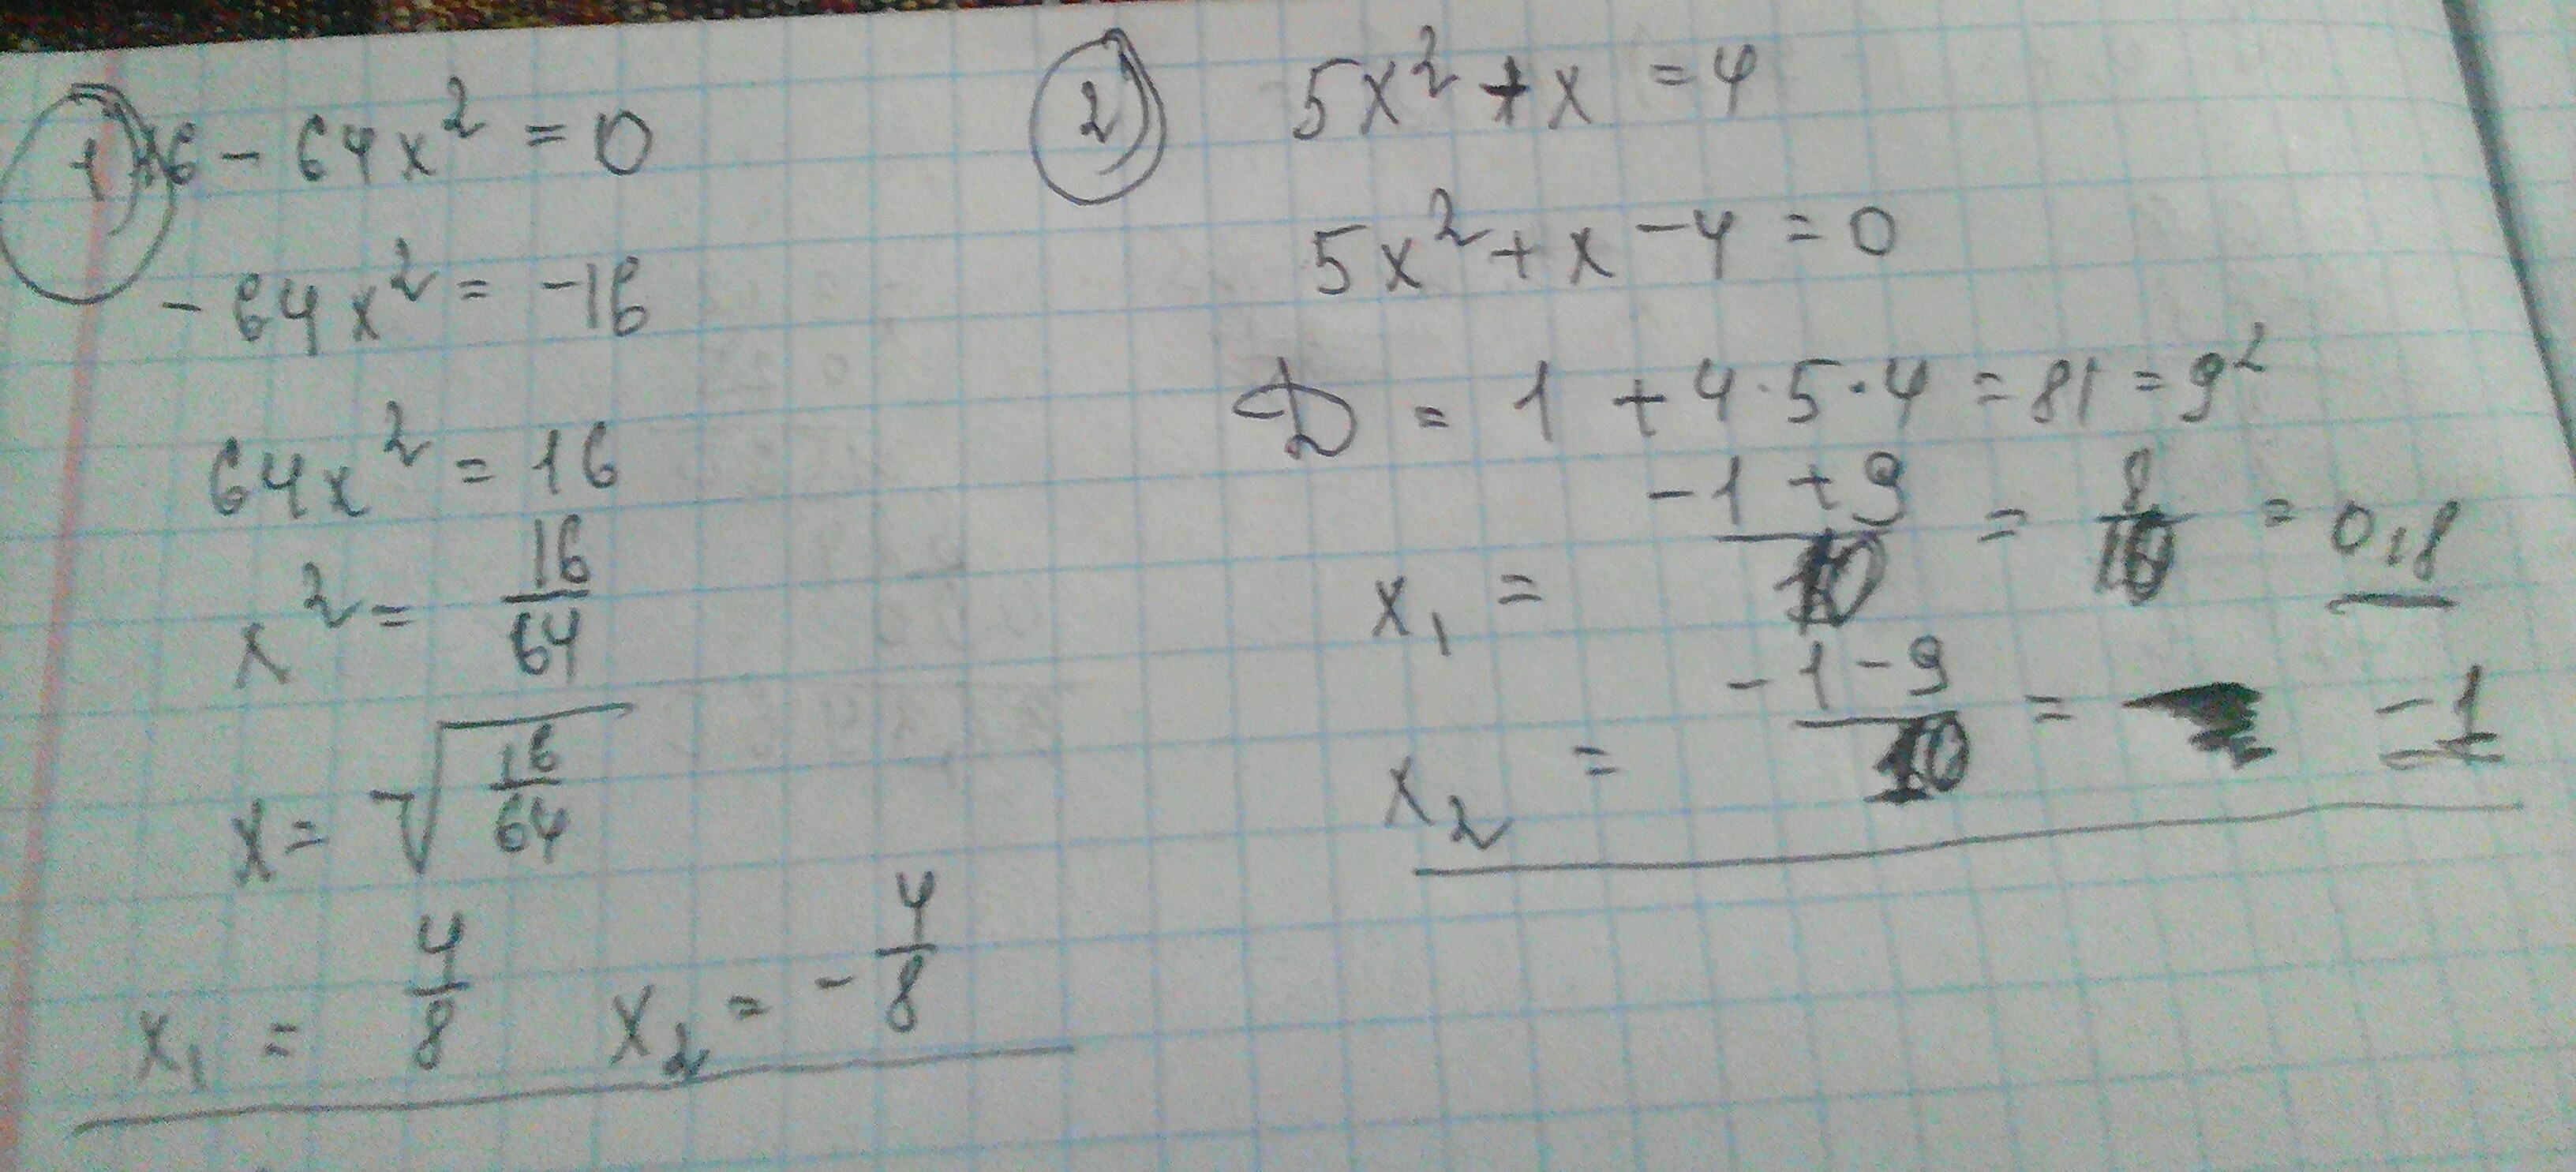 1) 16 - 64x² = 0
- 64x² = -16
64x² = 16
x² = 16/64
x = √(16/64)
x₁ = 4/8 x₂ = - 4/8
2) 5x² + x = 4
5x² + x - 4 = 0
D = 1 + 4·5·4 = 81 = 9²
x₁ = (-1 + 9)/10 = 8/10 = 0,8
x₂ = (-1 - 9)/10 = -1